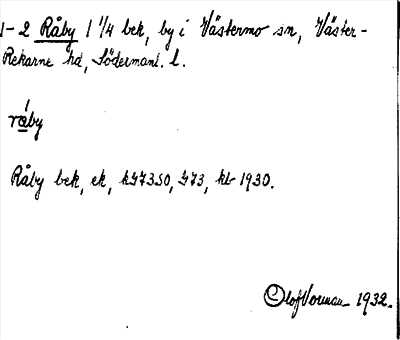 1-2 Råby 1 1/4 bek, by i Västermo sn, Väster-
Rekarne hd, Södermanl. l.
råby
Råby bek, ek, kb 1930.
Olof Norman 1932.